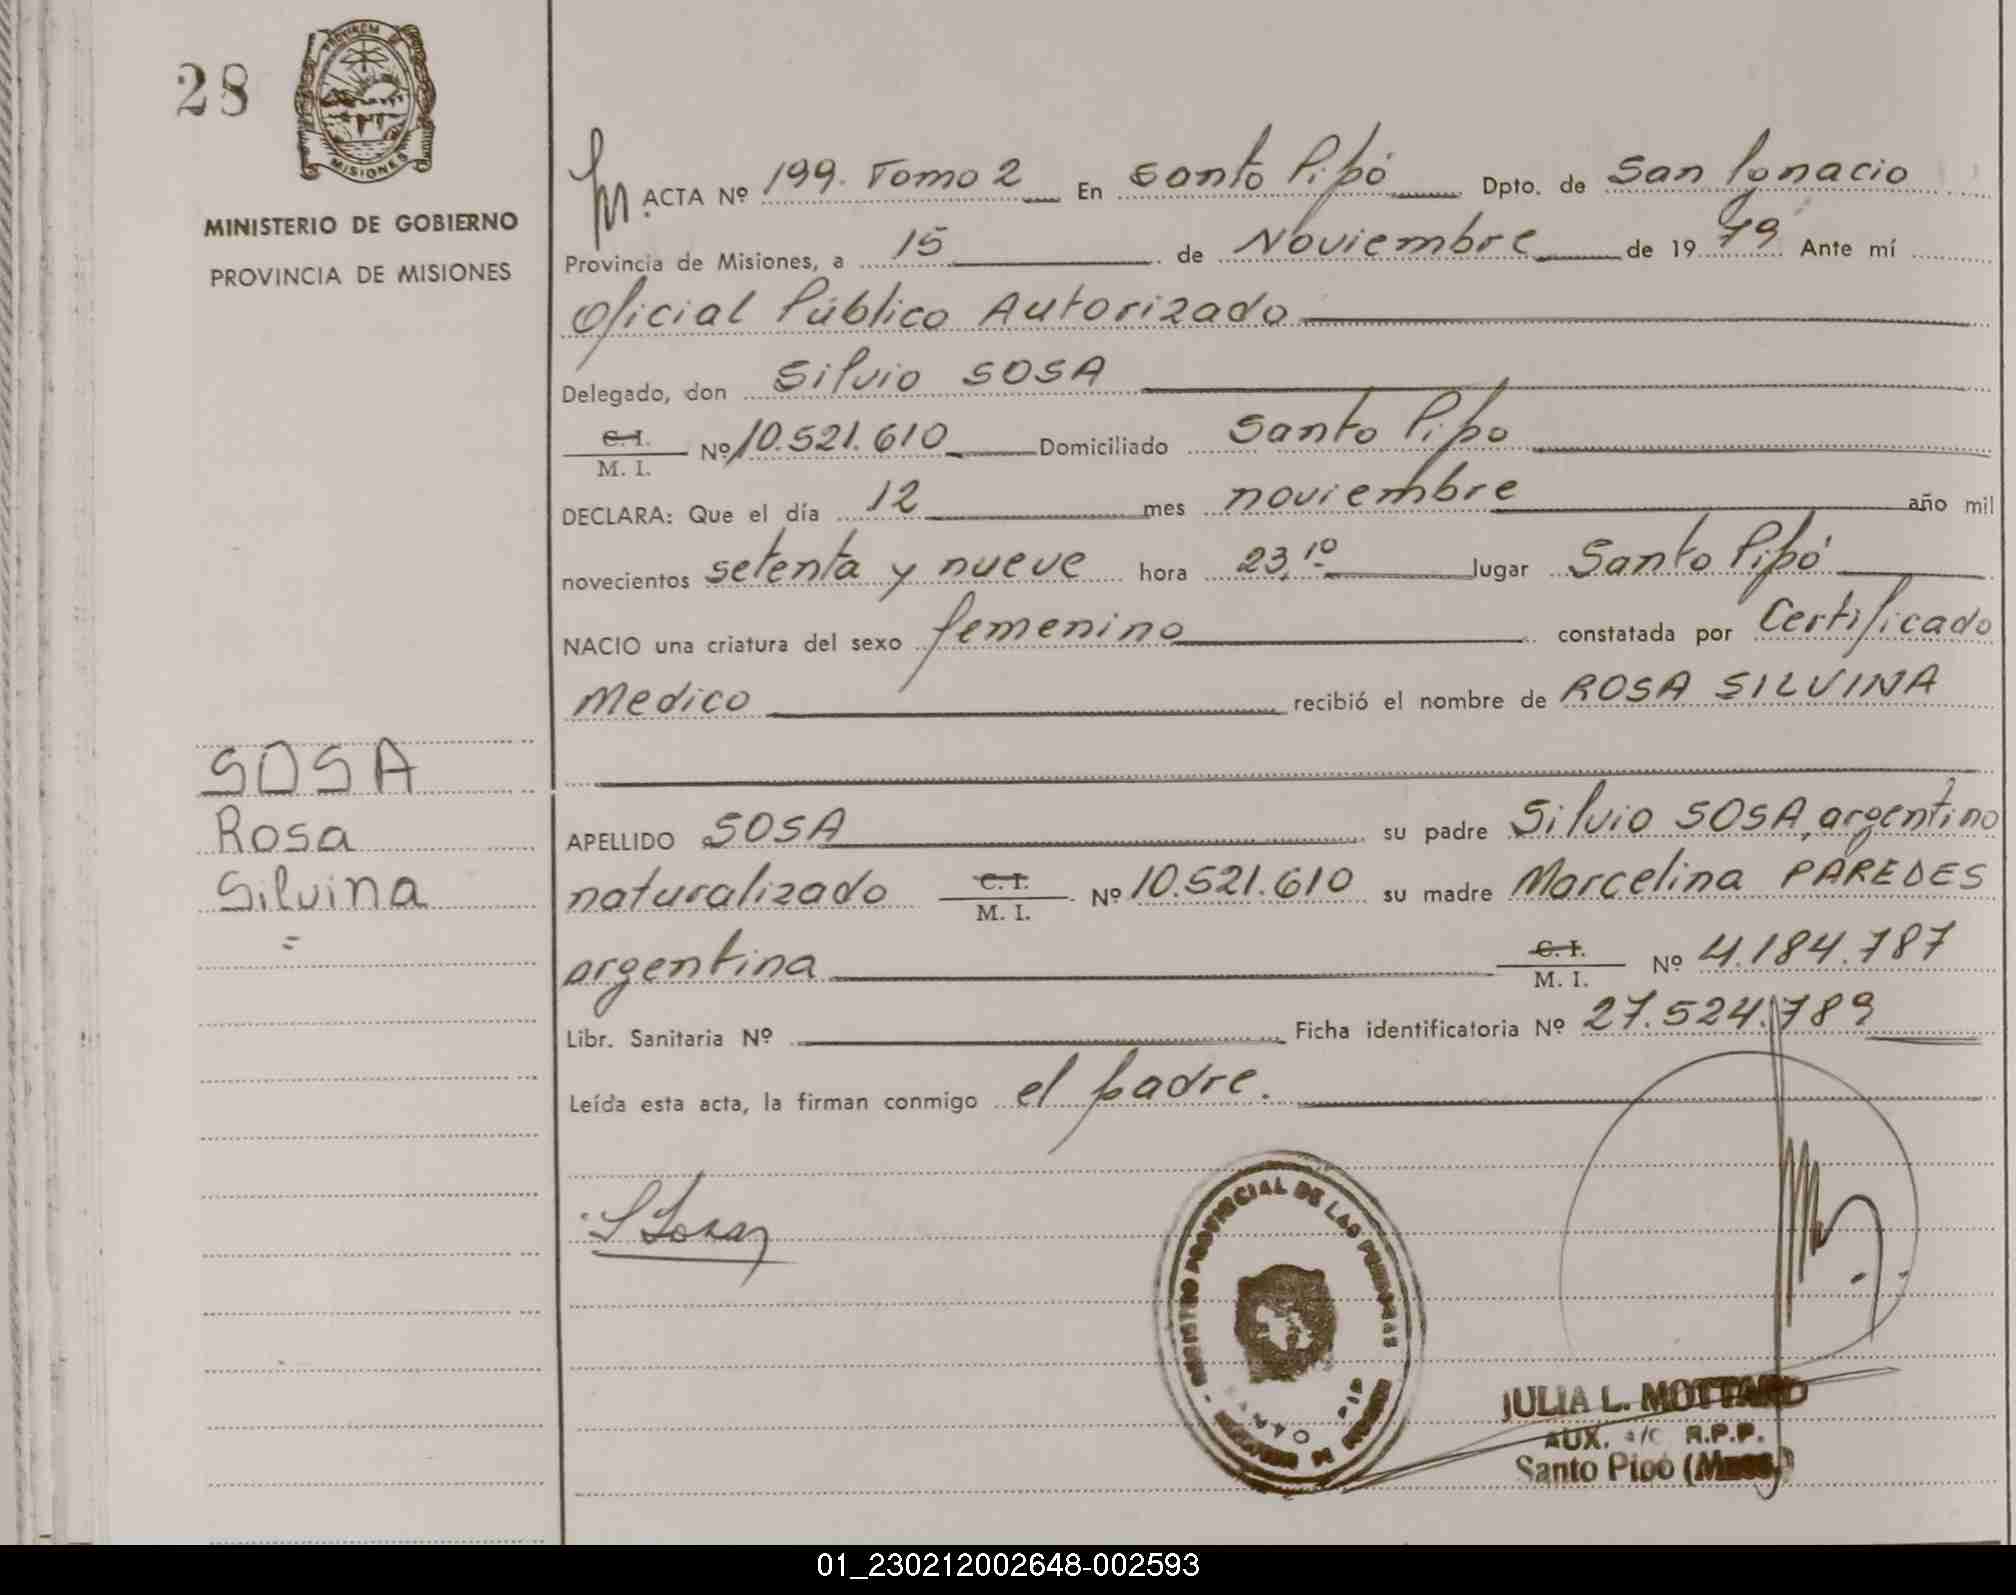 28
PROVINCIA DE
MISIONES
MINISTERIO DE GOBIERNO
PROVINCIA DE MISIONES
SOSA
Rosa
Silvina
=
ACTA Nº 199. Tomo 2 En Santo Pipó Dpto. de San Ignacio
Provincia de Misiones, a 15 de Noviembre de 1979 Ante mí
Oficial Público Autorizado
Delegado, don Silvio SOSA
C. I.
M. I. Nº 10.521.610 Domiciliado Santo Pipo
DECLARA: Que el día 12 mes noviembre año mil
novecientos setenta y nueve hora 23,10 lugar Santo Pipó
NACIO una criatura del sexo femenino constatada por Certificado
Medico recibió el nombre de ROSA SILVINA
APELLIDO SOSA su padre Silvio SOSA, argentino
naturalizado C. I. M. I. Nº 10.521.610 su madre Marcelina PAREDES
argentina C. I. M. I. Nº 4.184.787
Libr. Sanitaria Nº Ficha identificatoria Nº 27.524.789
Leída esta acta, la firman conmigo el padre.
S Sosa
REGISTRO PROVINCIAL DE LAS PERSONAS
JULIA L. MOTTARD
AUX. a/c R.P.P.
Santo Pipó (Mnes.)
01_230212002648-002593